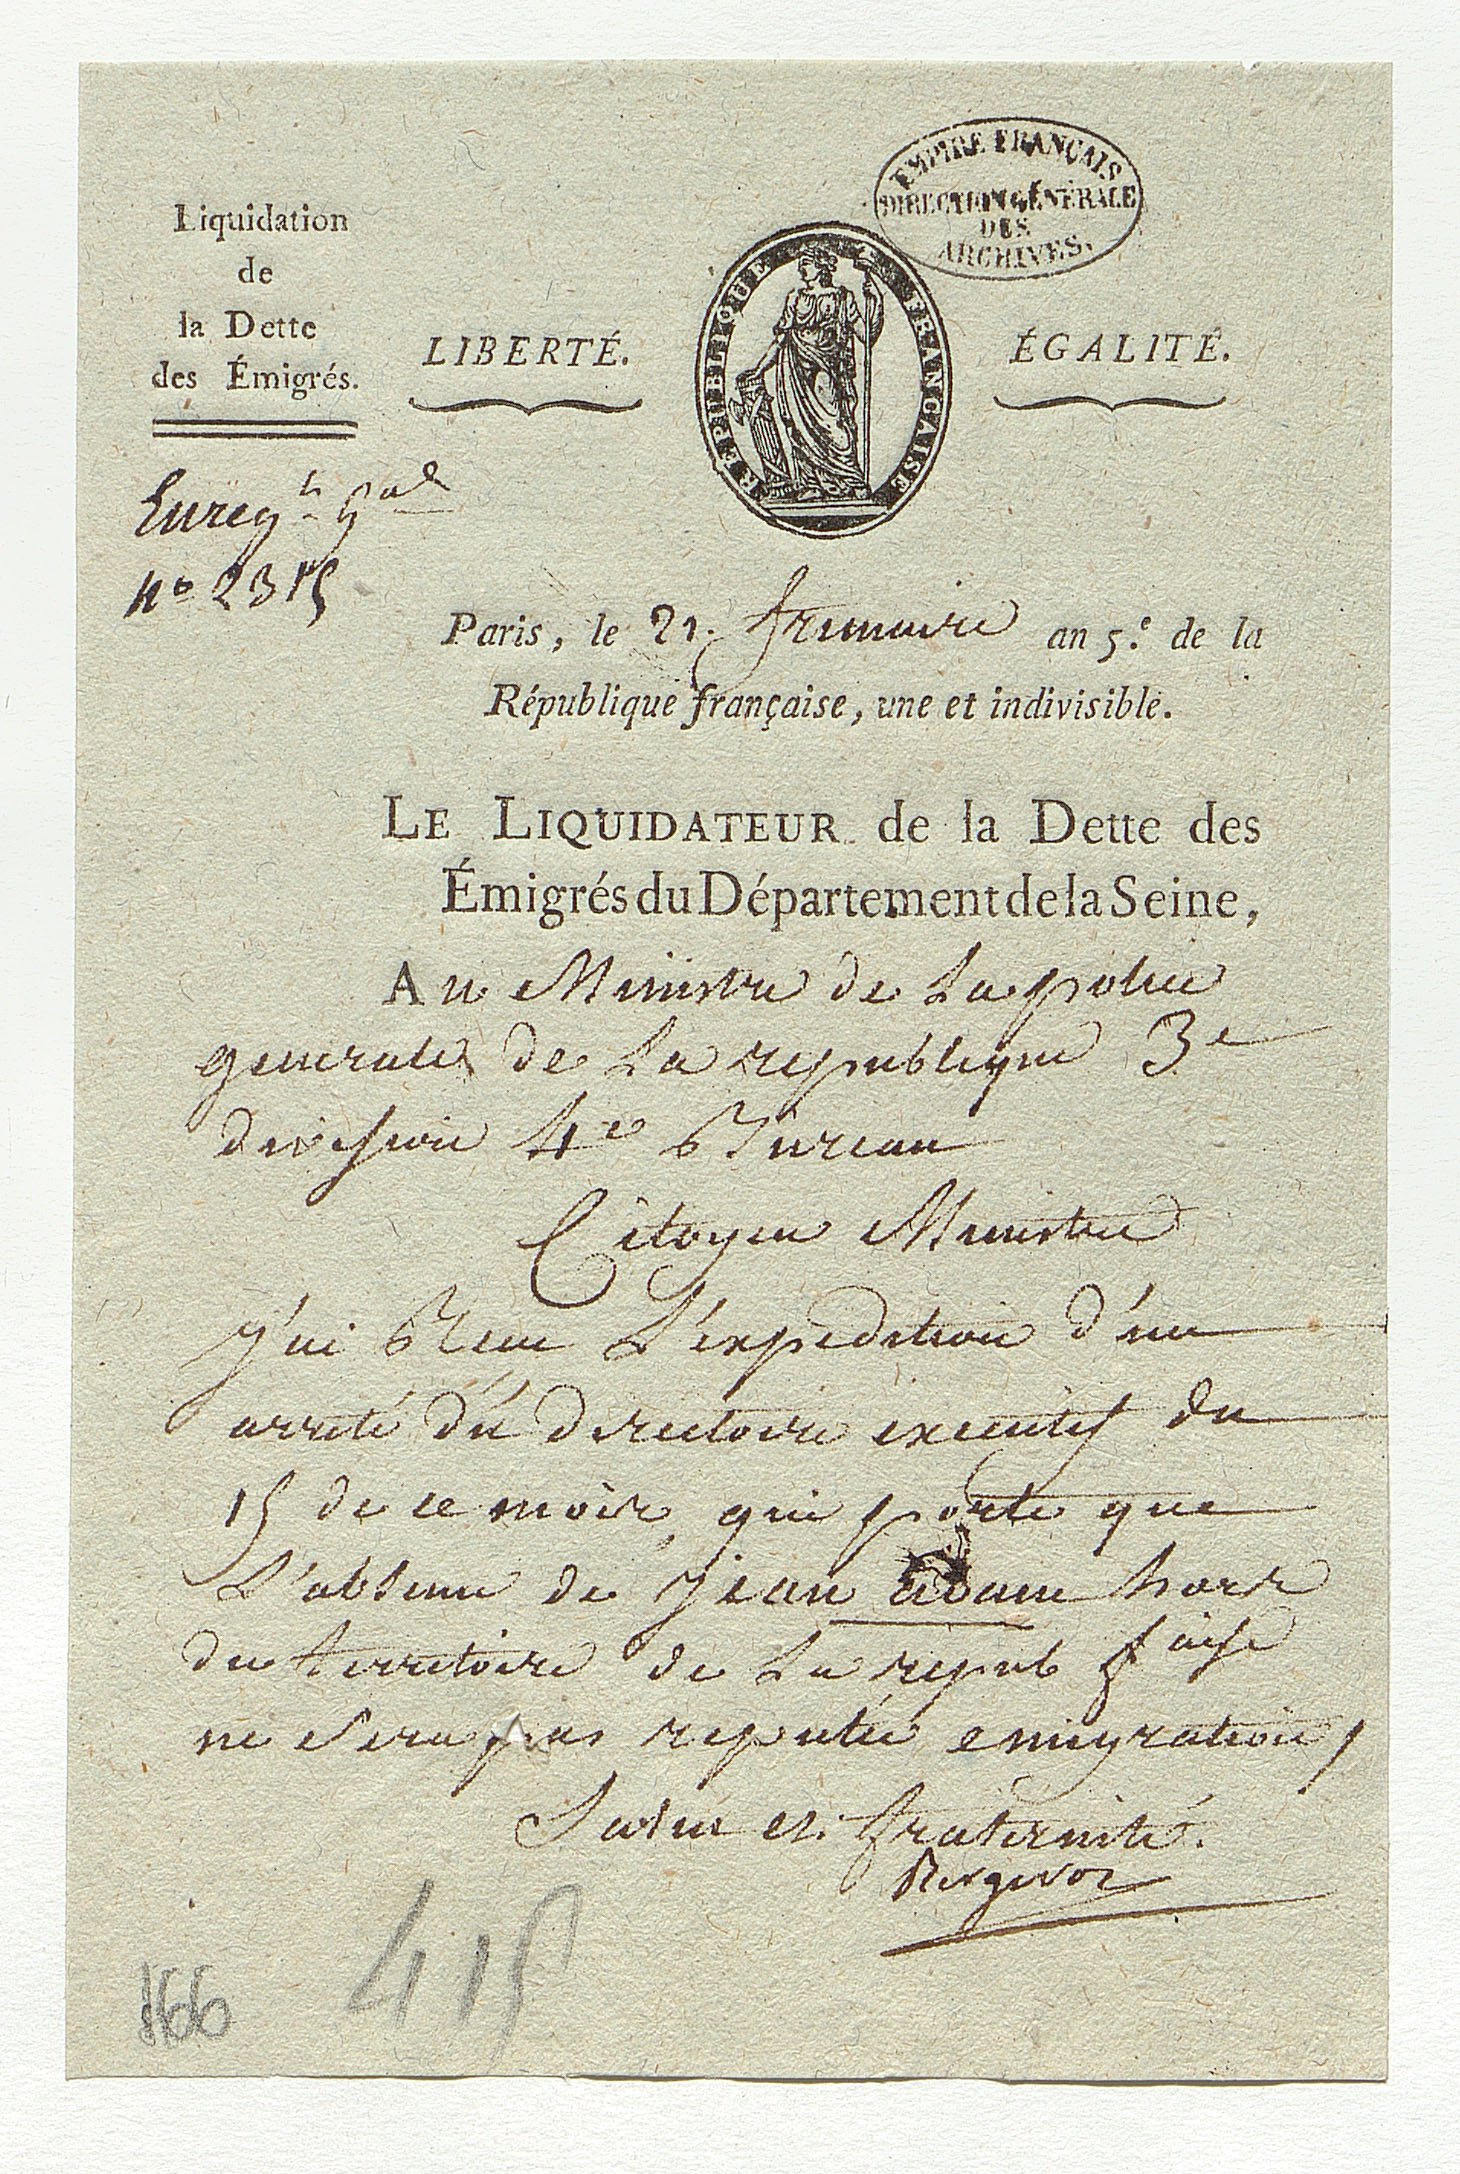 EMPIRE FRANÇAIS
DIRECTION GÉNÉRALE
DES
ARCHIVES.
Liquidation
de
la Dette
des Émigrés.
LIBERTÉ.
RÉPUBLIQUE FRANÇAISE
ÉGALITÉ.
Enregt gal
no 2315
Paris, le 21. frimaire an 5.e de la
République française, une et indivisible.
LE LIQUIDATEUR de la Dette des
Émigrés du Département de la Seine,
Au Ministre de La police
generale de La republique 3e
division 4e Bureau
Citoyen Ministre
J'ai Recu L'expedition d'un
arreté du directoire executif du
15 de ce mois, qui porte que
L'absence de Jean adam hors
du territoire de La repub faise
ne sera pas reputée emigration /
Salut et fraternité.
Bergerot
166
415